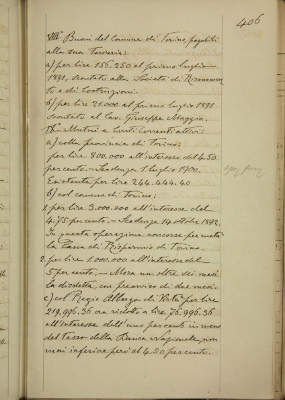 406
VIII° Buoni del Comune di Torino pagabili
alla sua Tesoreria:
a) per lire 156.250 al primo luglio
1891, scontati alla Società di Risanamen-
to e di Costruzioni.
b) per lire 21.000 al primo luglio 1891
scontati al Cav. Giuseppe Maggia.
IX° Mutui e Conti correnti attivi:
a) colla provincia di Torino:
per lire 800.000 all'interesse del 4.50
per cento. - Scadenza 1 luglio 1900.
Esistente per lire 264.444.40
b) col comune di Torino:
1. per lire 3.000.000 all'interesse del
4.75 per cento. - Scadenza 14 8bre 1892.
In questa operazione concorse per metà
la Cassa di Risparmio di Torino.
2. per lire 1.000.000 all'interesse del
5 per cento, - Mora non oltre sei mesi
la disdetta, con preavviso di due mesi.
c) col Regio Albergo di Virtù per lire
219,996.36 ora ridotto a lire 76,996.36
all'interesse dell'uno per cento in meno
del tasso della Banca Nazionale, non
mai inferiore però al 4.50 per cento.